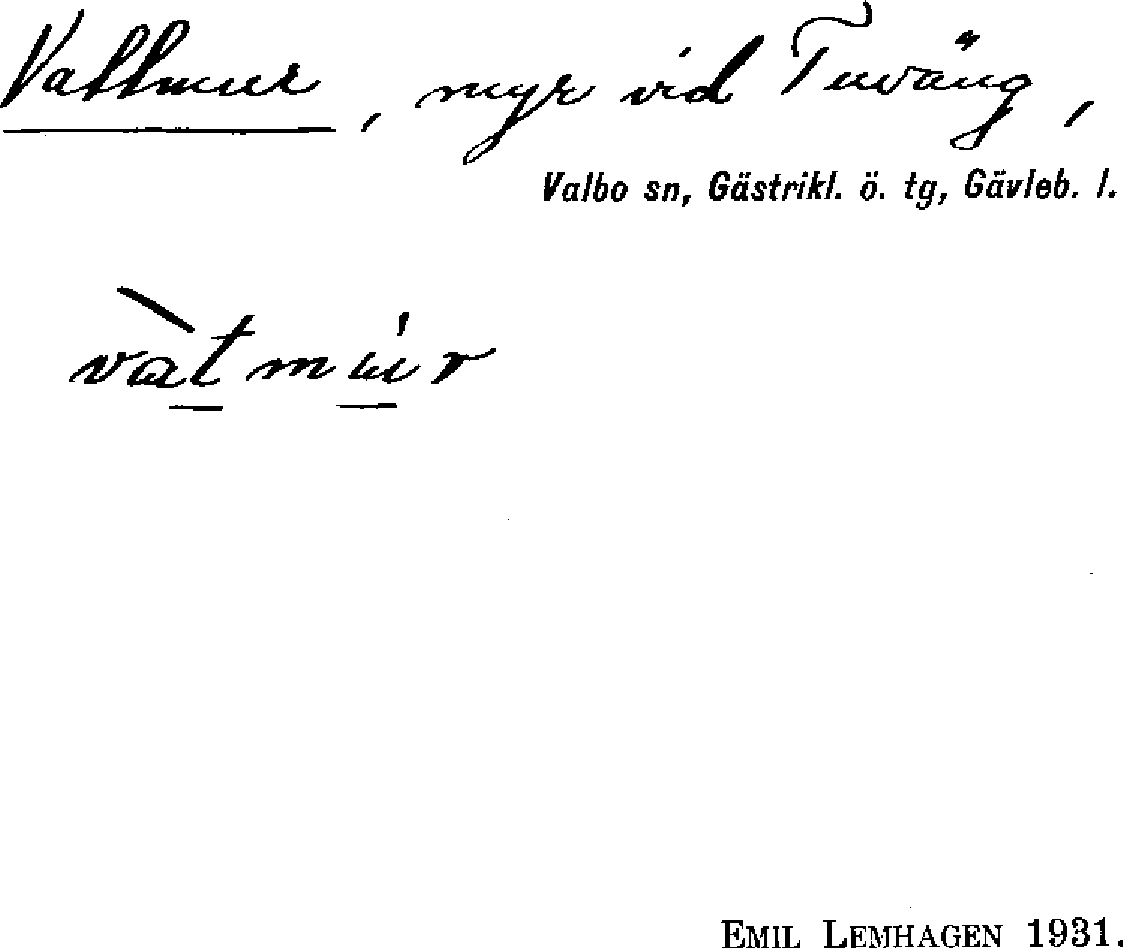 Vattmur, myr vid Tuväng,
Valbo sn, Gästrikl. ö. tg, Gävleb. l.
vàt múr
EMIL LEMHAGEN 1931.